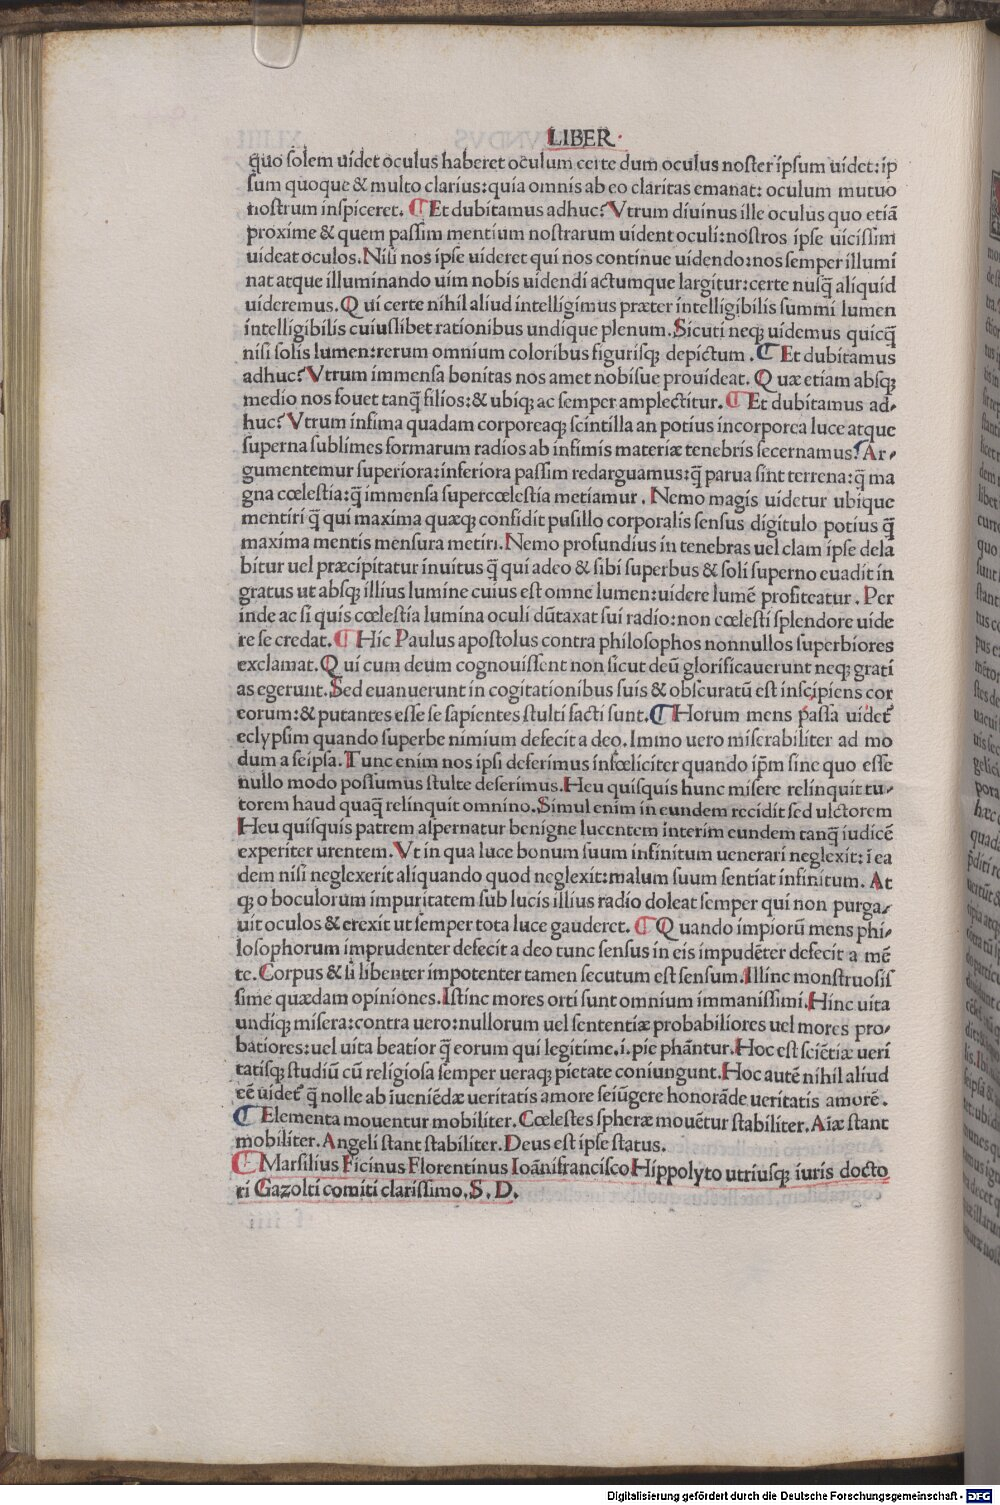 LIBER
quo ſolem uidet oculus haberet oculum certe dum oculus noſter ipſum uidet: ip
ſum quoque & multo clarius: quia omnis ab eo claritas emanat: oculum mutuo
noſtrum inſpiceret. ¶ Et dubitamus adhuc? Vtrum diuinus ille oculus quo etiã
proxime & quem paſſim mentium noſtrarum uident oculi: noſtros ipſe uiciſſim
uideat oculos. Niſi nos ipſe uideret qui nos continue uidendo: nos ſemper illumi
nat atque illuminando uim nobis uidendi actumque largitur: certe nuſq̃ aliquid
uideremus. Qui certe nihil aliud intelligimus præter intelligibilis ſummi lumen
intelligibilis cuiuſlibet rationibus undique plenum. Sicuti neqꝫ uidemus quicq̃
niſi ſolis lumen: rerum omnium coloribus figuriſqꝫ depictum. ¶ Et dubitamus
adhuc? Vtrum immenſa bonitas nos amet nobiſue prouideat. Quæ etiam abſqꝫ
medio nos fouet tanq̃ filios: & ubiqꝫ ac ſemper amplectitur. ¶ Et dubitamus ad-
huc? Vtrum infima quadam corporeaqꝫ ſcintilla an potius incorporea luce atque
ſuperna ſublimes formarum radios ab infimis materiæ tenebris ſecernamus? Ar-
gumentemur ſuperiora: inferiora paſſim redarguamus: q̃ parua ſint terrena: q̃ ma
gna cœleſtia: q̃ immenſa ſupercœleſtia metiamur. Nemo magis uidetur ubique
mentiri q̃ qui maxima quæqꝫ confidit puſillo corporalis ſenſus digitulo potius q̃
maxima mentis menſura metiri. Nemo profundius in tenebras uel clam ipſe dela
bitur uel præcipitatur inuitus q̃ qui adeo & ſibi ſuperbus & ſoli ſuperno euadit in
gratus ut abſqꝫ illius lumine cuius eſt omne lumen: uidere lumẽ profiteatur. Per
inde ac ſi quis cœleſtia lumina oculi dũtaxat ſui radio: non cœleſti ſplendore uide
re ſe credat. ¶ Hic Paulus apoſtolus contra philoſophos nonnullos ſuperbiores
exclamat. Qui cum deum cognouiſſent non ſicut deũ glorificauerunt neqꝫ grati
as egerunt. Sed euanuerunt in cogitationibus ſuis & obſcuratũ eſt inſcipiens cor
eorum: & putantes eſſe ſe ſapientes ſtulti facti ſunt. ¶ Horum mens paſſa uidet᷑
eclypſim quando ſuperbe nimium defecit a deo. Immo uero miſerabiliter ad mo
dum a ſeipſa. Tunc enim nos ipſi deferimus infœliciter quando ip̃m ſine quo eſſe
nullo modo poſſumus ſtulte deferimus. Heu quiſquis hunc miſere relinquit tu-
torem haud quaq̃ relinquit omnino. Simul enim in eundem recidit ſed ultorem
Heu quiſquis patrem aſpernatur benigne lucentem interim eundem tanq̃ iudicẽ
experiter urentem. Vt in qua luce bonum ſuum infinitum uenerari neglexit: ĩ ea
dem niſi neglexerit aliquando quod neglexit: malum ſuum ſentiat infinitum. At
qꝫ o boculorum impuritatem ſub lucis illius radio doleat ſemper qui non purga-
uit oculos & erexit ut ſemper tota luce gauderet. ¶ Quando impiorũ mens phi-
loſophorum imprudenter defecit a deo tunc ſenſus in eis impudẽter defecit a mẽ
te. Corpus & ſi libenter impotenter tamen ſecutum eſt ſenſum. Illinc monſtruoſiſ
ſime quædam opiniones. Iſtinc mores orti ſunt omnium immaniſſimi. Hinc uita
undiqꝫ miſera: contra uero: nullorum uel ſententiæ probabiliores uel mores pro-
batiores: uel uita beatior q̃ eorum qui legitime. i. pie phãntur. Hoc eſt ſciẽtiæ ueri
tatiſqꝫ ſtudiũ cũ religioſa ſemper ueraqꝫ pietate coniungunt. Hoc autẽ nihil aliud
eẽ uidet᷑ q̃ nolle ab iueniẽdæ ueritatis amore ſeiũgere honorãde ueritatis amorẽ.
¶ Elementa mouentur mobiliter. Cœleſtes ſpheræ mouẽtur ſtabiliter. Aĩæ ſtant
mobiliter. Angeli ſtant ſtabiliter. Deus eſt ipſe ſtatus.
¶ Marſilius Ficinus Florentinus Ioãnifranciſco Hippolyto utriuſqꝫ iuris docto
ri Gazolti comiti clariſſimo. S. D.
Digitalisierung gefördert durch die Deutsche Forschungsgemeinschaft - DFG